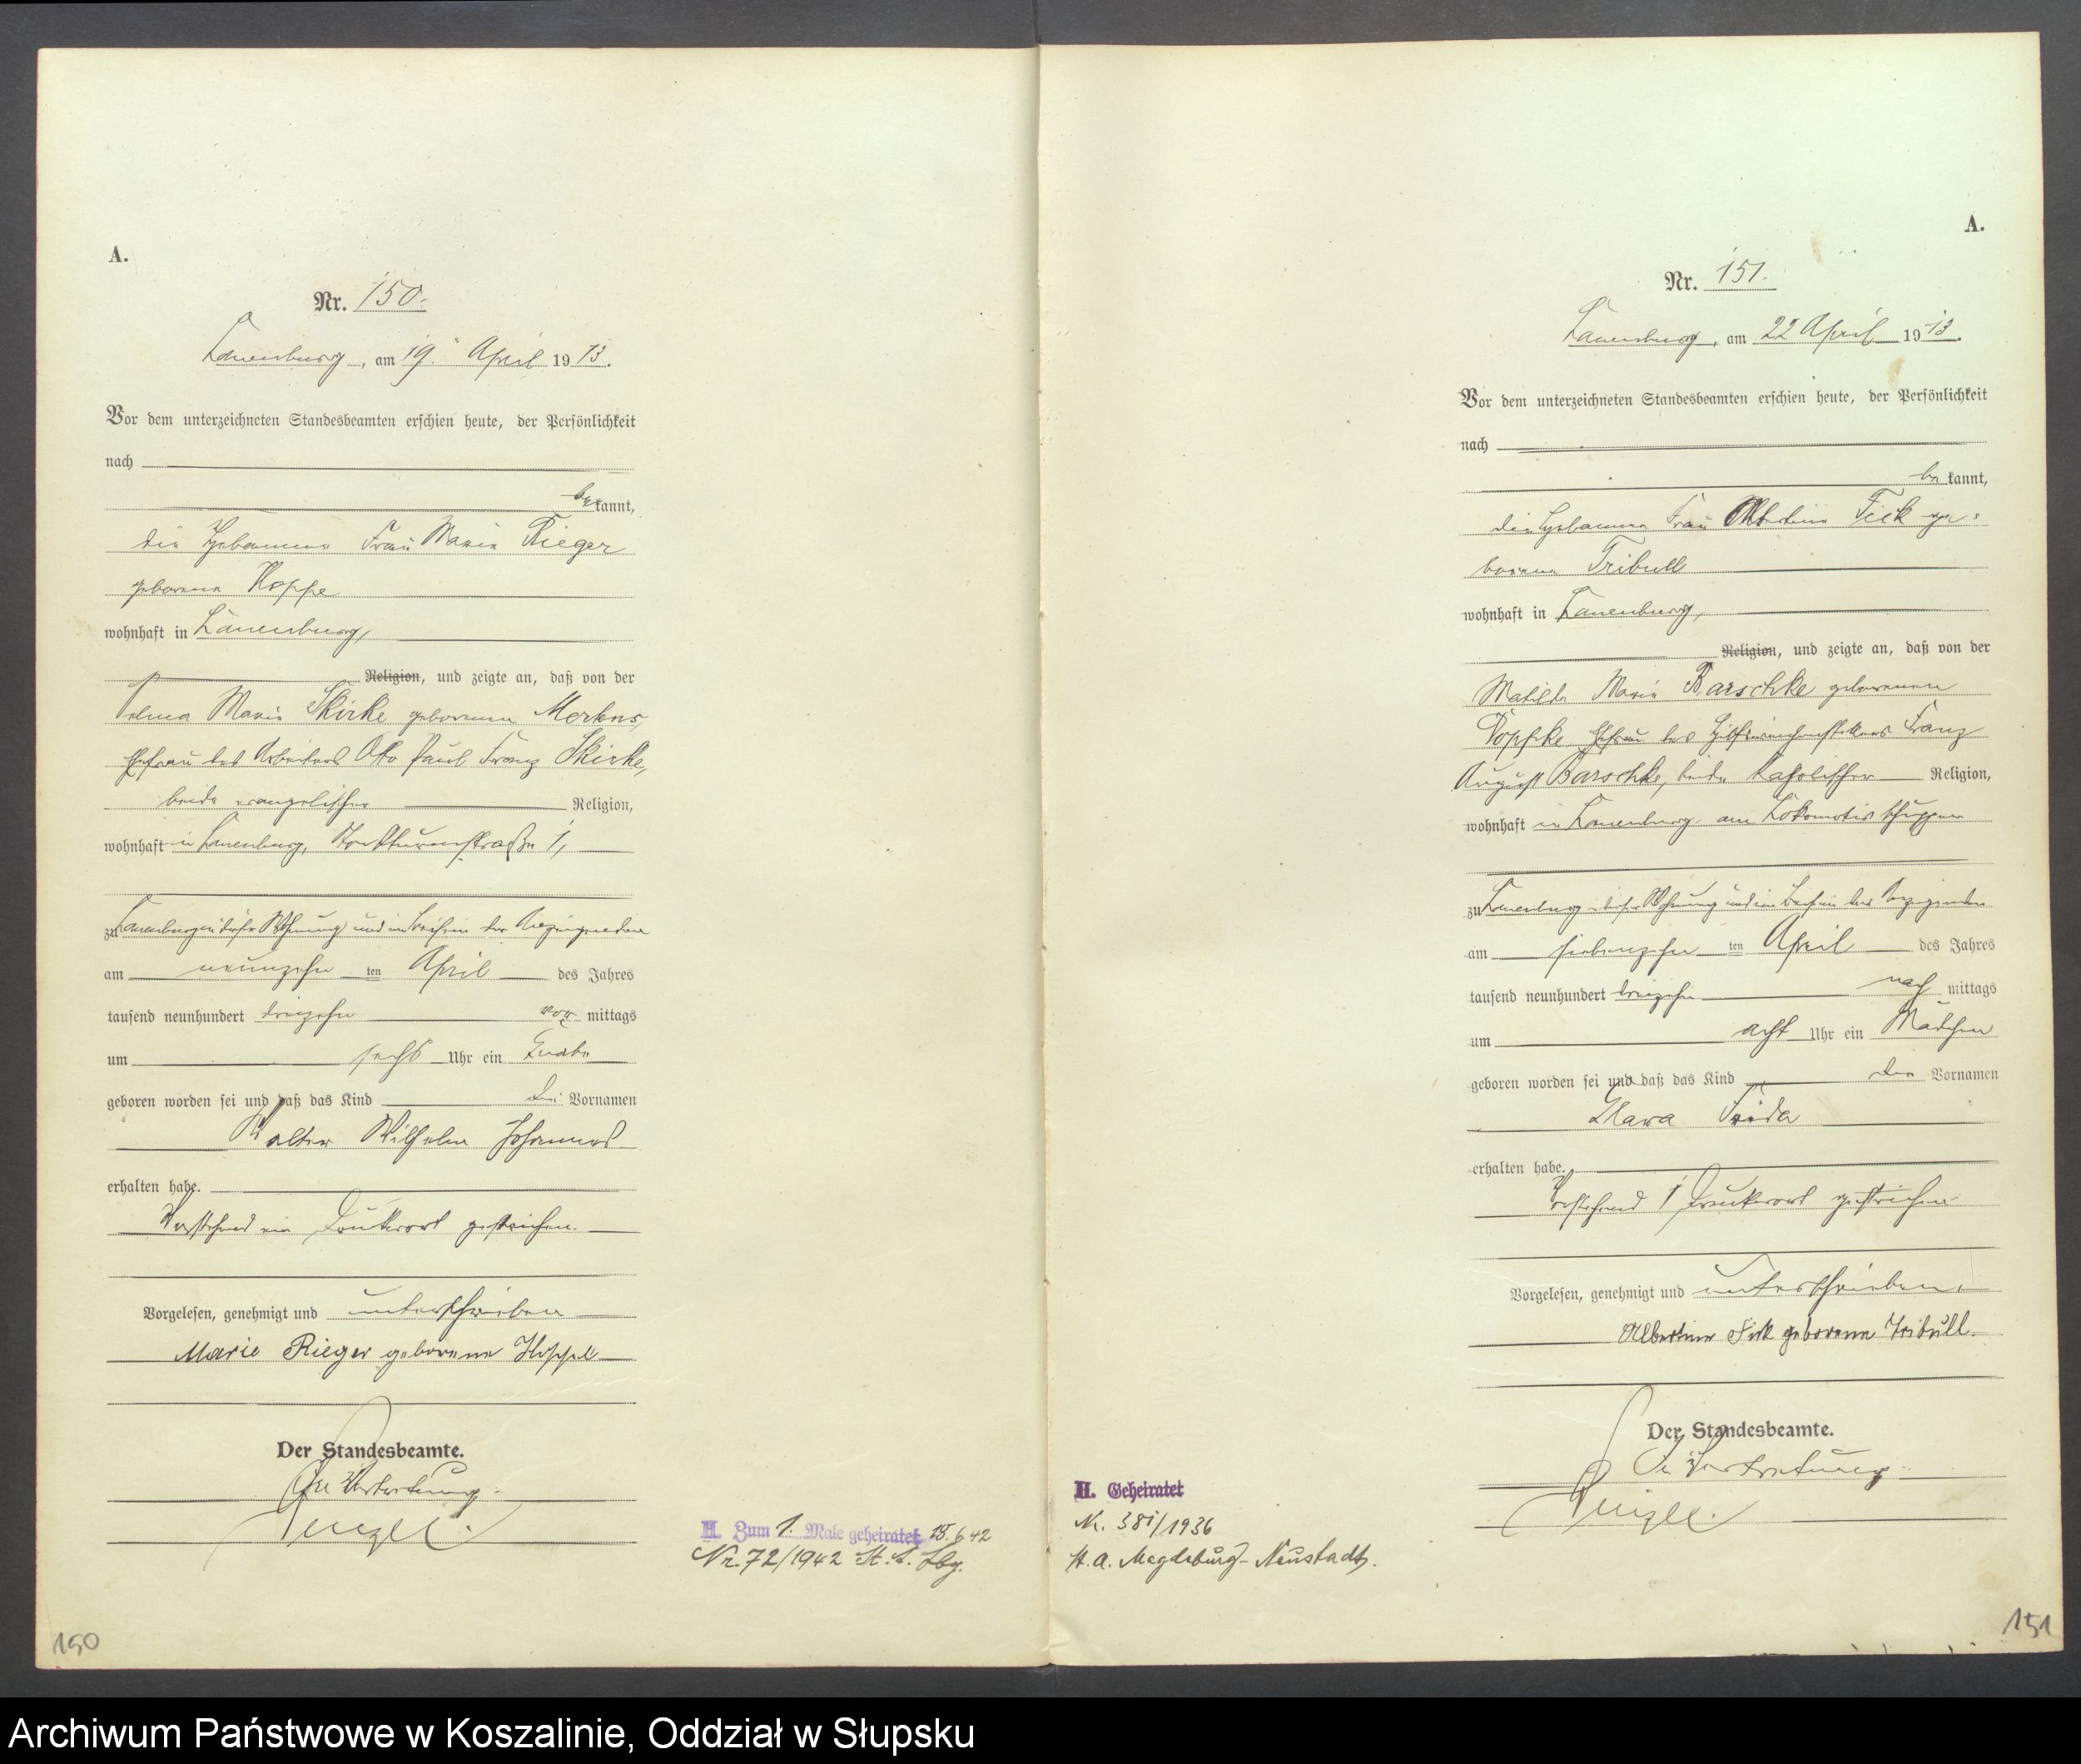 A.
Nr. 150.
Lauenburg, am 19. April 1913.
Vor dem unterzeichneten Standesbeamten erschien heute, der Persönlichkeit
nach
bekannt,
die Hebamme Frau Marie Rieger
geborene Hoppe
wohnhaft in Lauenburg,
Religion, und zeigte an, daß von der
Marie Skirke geborenen Mertens,
Ehefrau des Arbeiters Otto Paul Franz Skirke,
beide evangelischer Religion,
wohnhaft in Lauenburg, 1,
zu Lauenburg in dieser Wohnung und im Beisein der Anzeigenden
am neunzehn ten April des Jahres
tausend neunhundert dreizehn vor mittags
um sechs Uhr ein Knabe
geboren worden sei und daß das Kind die Vornamen
Walter Wilhelm Johannes
erhalten habe.
Vorstehend ein Druckwort gestrichen.
Vorgelesen, genehmigt und unterschrieben
Marie Rieger geborene Hoppe
Der Standesbeamte.
In Vertretung.
II. Zum 1. Male geheiratet 15.6.42
Nr. 72/1942 St. A. Lbg.
150
A.
Nr. 151.
Lauenburg, am 22 April 1913.
Vor dem unterzeichneten Standesbeamten erschien heute, der Persönlichkeit
nach
bekannt,
die Hebamme Frau Albertine Fick ge-
borene Tribull
wohnhaft in Lauenburg,
Religion, und zeigte an, daß von der
Marie Barschke geborenen
Ehefrau des Franz
August Barschke, beide katholischer Religion,
wohnhaft in Lauenburg am Lokomotivschuppen
zu Lauenburg in dieser Wohnung und im Beisein der Anzeigenden
am siebenzehn ten April des Jahres
tausend neunhundert dreizehn nach mittags
um acht Uhr ein Mädchen
geboren worden sei und daß das Kind die Vornamen
Klara Frida
erhalten habe.
Vorstehend 1 Druckwort gestrichen
Vorgelesen, genehmigt und unterschrieben.
Albertine Fick geborene Tribull.
Der Standesbeamte.
In Vertretung.
H. Geheiratet
Nr. 381/1936
St. A. Magdeburg-Neustadt.
151
Archiwum Państwowe w Koszalinie, Oddział w Słupsku